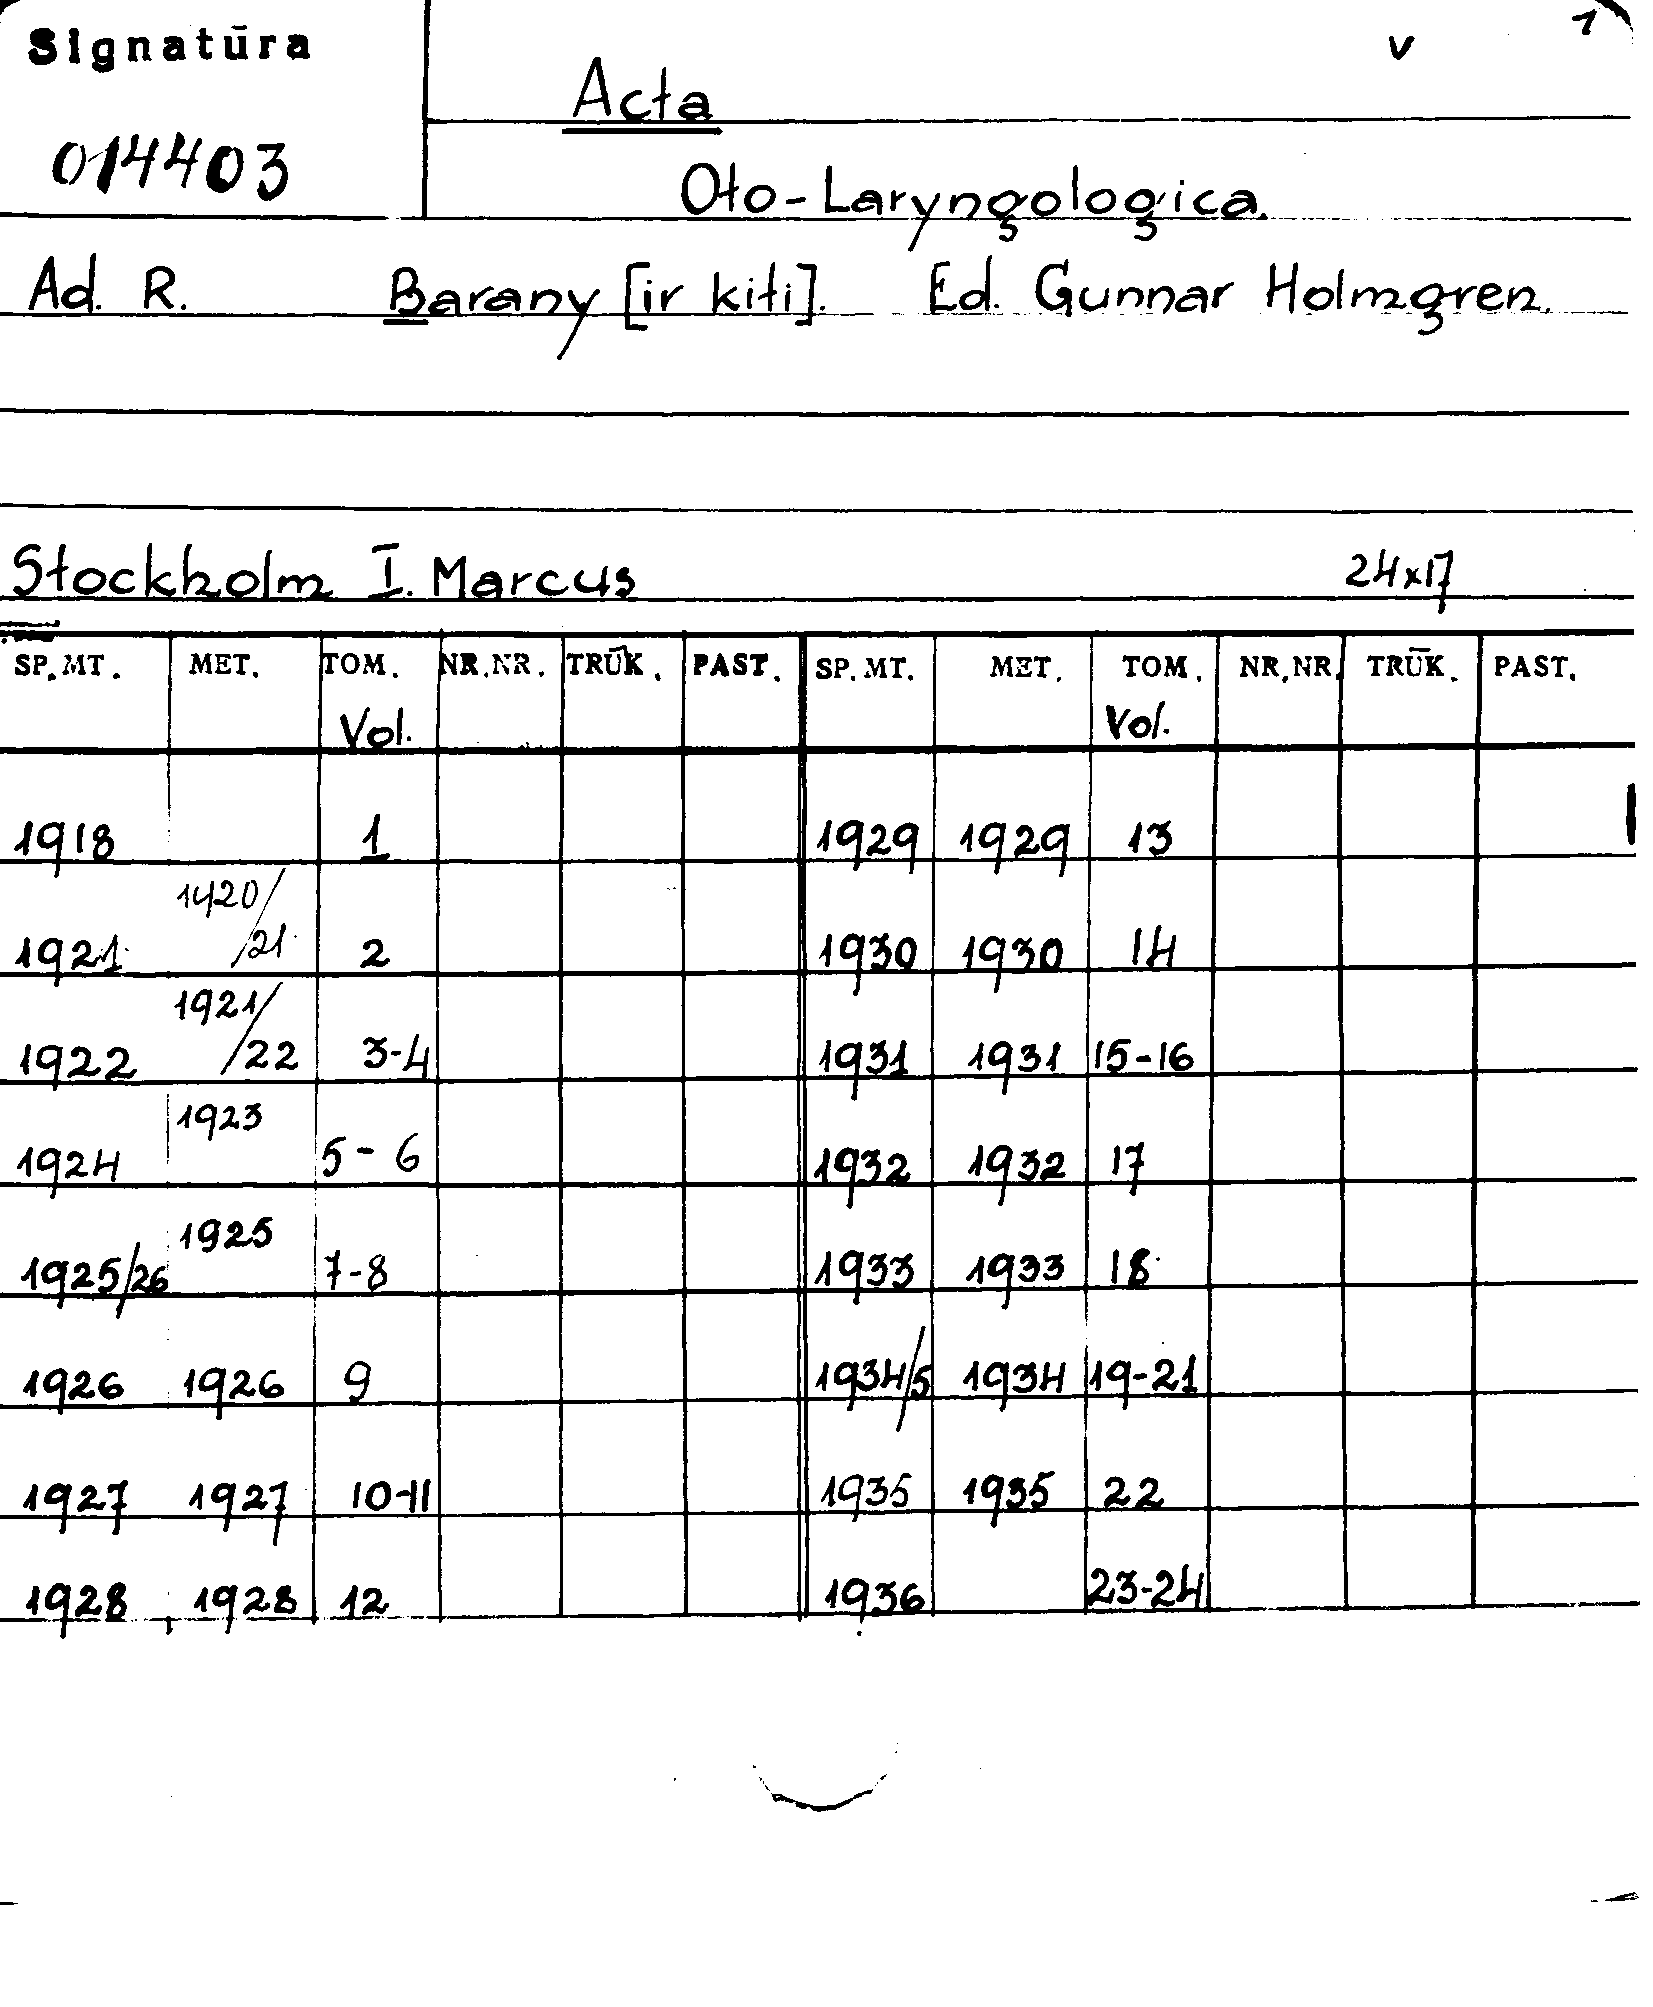 Signatūra
v 1
Acta
014403
Oto-Laryngologica.
Ad. R. Barany [ir kiti]. Ed. Gunnar Holmgren.
Stockholm I. Marcus 24x17
SP. MT. MET. TOM. NR. NR. TRŪK. PAST. SP. MT. MET. TOM. NR. NR. TRŪK. PAST.
Vol. Vol.
1918 1 1929 1929 13
1921 1920/21 2 1930 1930 14
1922 1921/22 3-4 1931 1931 15-16
1924 1923 5-6 1932 1932 17
1925/26 1925 7-8 1933 1933 18
1926 1926 9 1934/5 1934 19-21
1927 1927 10-11 1935 1935 22
1928 1928 12 1936 23-24